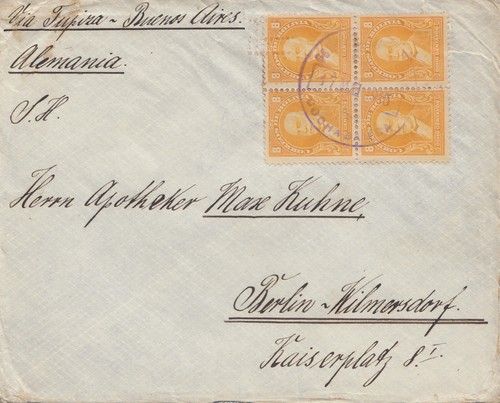 Via Tupiza - Buenos Aires.
Alemania.
S. H.
Herrn Apotheker Max Kuhne,
Berlin - Wilmersdorf.
Kaiserplatz 8 I.
8 8
8 8
8 8
8 8
CORREOS DE BOLIVIA